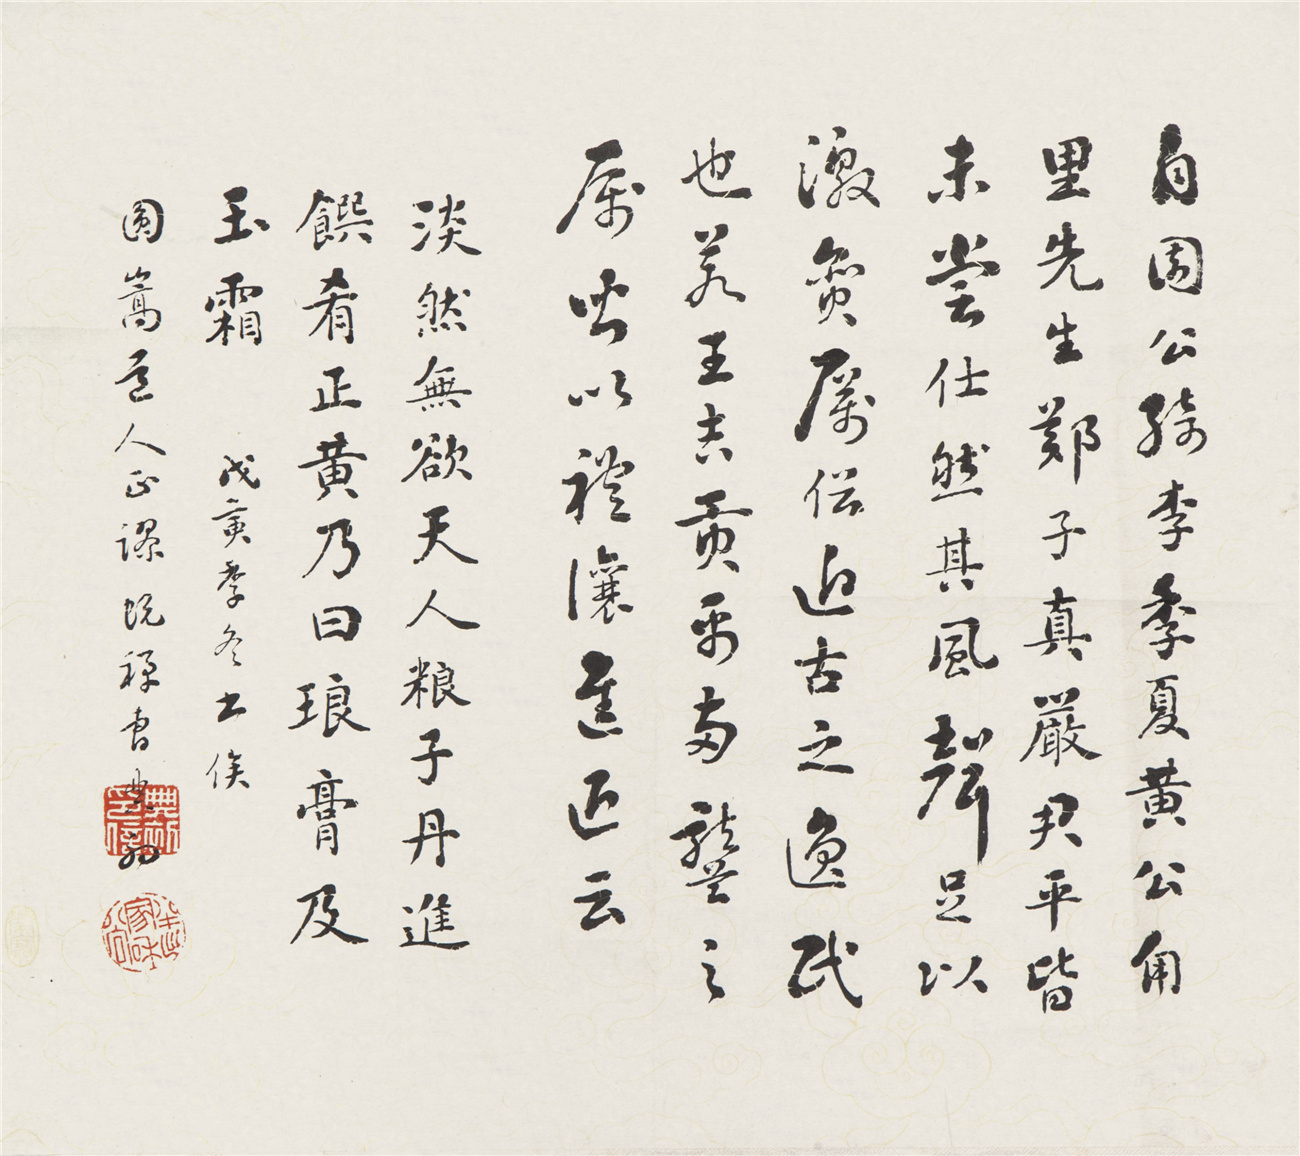 自園公綺李季夏黃公甪
里先生鄭子真嚴君平皆
未嘗仕然其風聲足以
激貪厲俗近古之逸民
也若王吉貢禹兩龔之
屬皆以禮讓進退云
淡然無欲天人粮子丹進
饌肴正黃乃曰琅膏及
玉霜 戊寅季冬上俟
圓嵩道人正謬 禪書